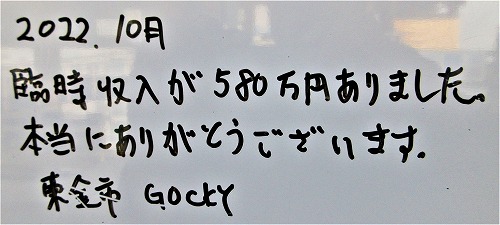 2022.10月
臨時収入が580万円ありました。
本当にありがとうございます.
東金市 GOCKY